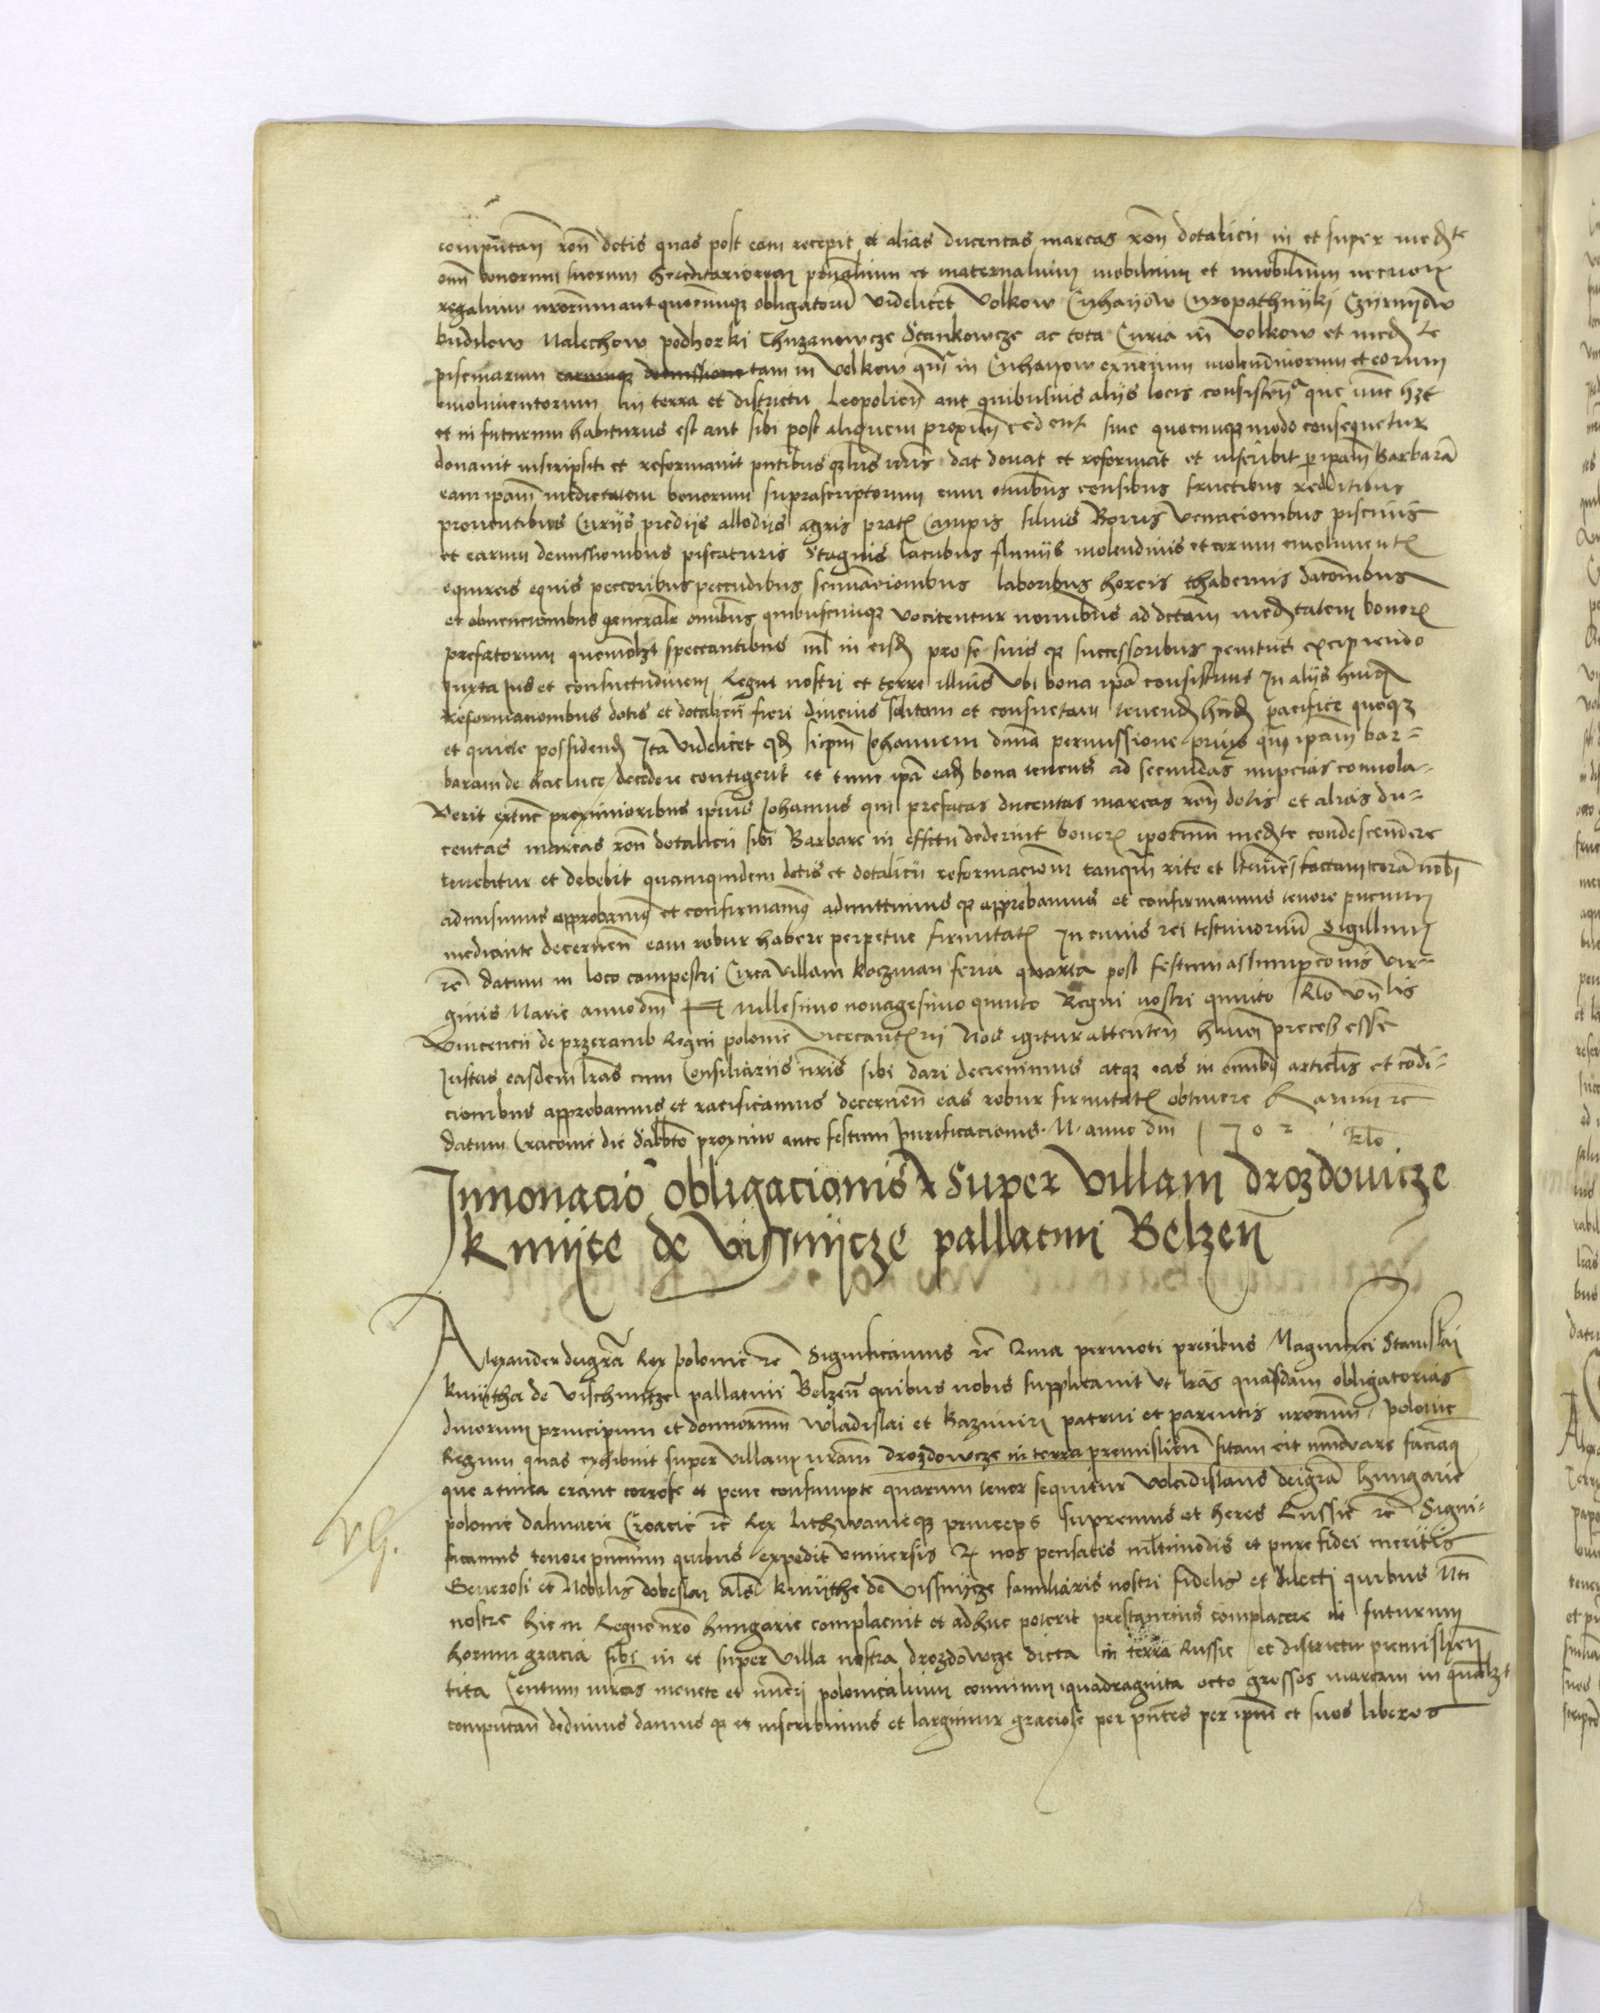 computan ron dotis quas post eam recepit et alias ducentas marcas ron dotalicii in et super medte
omn bonorum suorum hereditariorum paternalium et maternalium mobilium et inmobilium necnon
regalium nrorum aut quocunqz obligatorum videlicet Volkow Cuhayow Curopathnyki Czyrnyow
budilow Malechow podhorki Thuzanowcze Stankowcze ac tota Curia in Volkow et medte
piscinarum earumqz demissione tam in Volkow qm in Cuhayow exnencium molendinorum et eorum
emolumentorum in terra et districtu Leopolien aut quibusuis alijs locis consisten que nunc hzt
et in futurum habiturus est aut sibi post aliquem proxim cedent siue quocunqz modo consequetur
donauit inscripsit et reformauit pntibus qz lris nris dat donat et reformat et inscribit p ipam Barbaram
eam ipam medietatem bonorum suprascriptorum cum omnibus censibus fructibus redditibus
prouentibus Curijs predijs allodijs agris prat Campis siluis Borris venacionibus piscinis
et earum demissionibus piscaturis Stagnis lacubus fluuiis molendinis et eorum emoliment
equireis equis peccoribus peccudibus seminacionibus laboribus horeis thabernis dacionibus
et obuencionibus generalr omnibus quibuscunqz vocitentur nominibus ad dctam medtatem bonor
prefatorum quomolzt spectantibus nil in eisd pro se suis qz successoribus penitus excipiendo
Juxta Jus et consuetudinem Regni nostri et terre illius vbi bona ipa consistunt In alijs huiusd
Reformacionibus dotis et dotalicii fieri diucius solitam et consuetam tenend hnd pacifice quoqz
et quiete possidend Ita videlicet qd si ipm Johannem diuina permissione prius qm ipam bar-
baram de hac luce decedere contigerit et tunc ipa ead bona tenens ad secundas nupcias conuola-
uerit extunc proximioribus ipius Johannis qui prefatas ducentas marcas ron dotis et alias du-
centas marcas ron dotalicii sibi Barbare in effectu dederint bonor ipotum medte condescendere
tenebitur et debebit quamquidem dotis et dotalicii reformacionem tanqm rite et ltime factam coram nob
admisimus approbauimus et confirmauimus admittimus qz approbamus et confirmamus tenore pncium
mediante decernen eam robur habere perpetue firmitat In cuius rei testimonium Sigillum
rc datum in loco campestri Circa Villam koczman feria quarta post festum assumpcionis vir-
ginis Marie anno dni millesimo nonagesimo quinto Regni nostri quinto Rlo vnlis
Vincencii de przeramb Regni polonie Vicecancrii Nos igitur attenten huiusmodi preces esse
Justas easdem lras cum Consiliariis nris sibi dari decreuimus atqz eas in omnibus articulis et condi-
cionibus approbamus et ratificamus decernen eas robur firmitat obtinere Harum rc
datum Cracouie die Sabbto proximo ante festum purificacionis M anno dni 1502 Rlo
Innouacio obligacionis super villam drozdowicze
kmijte de vissnijcze pallatini Belzen
Alexander dei gra Rex polonie rc Significamus rc Quia permoti precibus Magnifici Stanislai
kmijtha de vischnicze pallatini Belzen quibus nobis supplicauit vt lras quasdam obligatorias
diuorum principum et dominorum wladislai et kazimiri patrui et parentis nrorum polonie
Regum quas exhibuit super villam nram drozdowcze in terra premislien sitam eit innouare faciamqz
que a tinea erant corrose et pene consumpte quarum tenor sequitur wladislaus dei gra hungarie
polonie dalmacie Croacie rc Rex lithwanieqz princeps supremus et heres Russie rc Signi-
ficamus tenore pncium quibus expedit vniuersis Qz nos pensatis mltimodis et pure fidei meritis
Generosi et Nobilis dobeslai als kmijthe de vissnijcze familiaris nostri fidelis et dilecti quibus Mti
nostre hic in Regno nro hungarie complacuit et adhuc poterit prestancius complacere in futurum
horum gracia sibi in et super villa nostra drozdowcze dicta in terra Russie et districtu premislien
sita Centum mrcas monete et nueri polonicalium communi quadraginta octo grossos marcam in qualzt
computan dedimus damus qz et inscribimus et largimur graciose per pntes per ipm et suos liberos